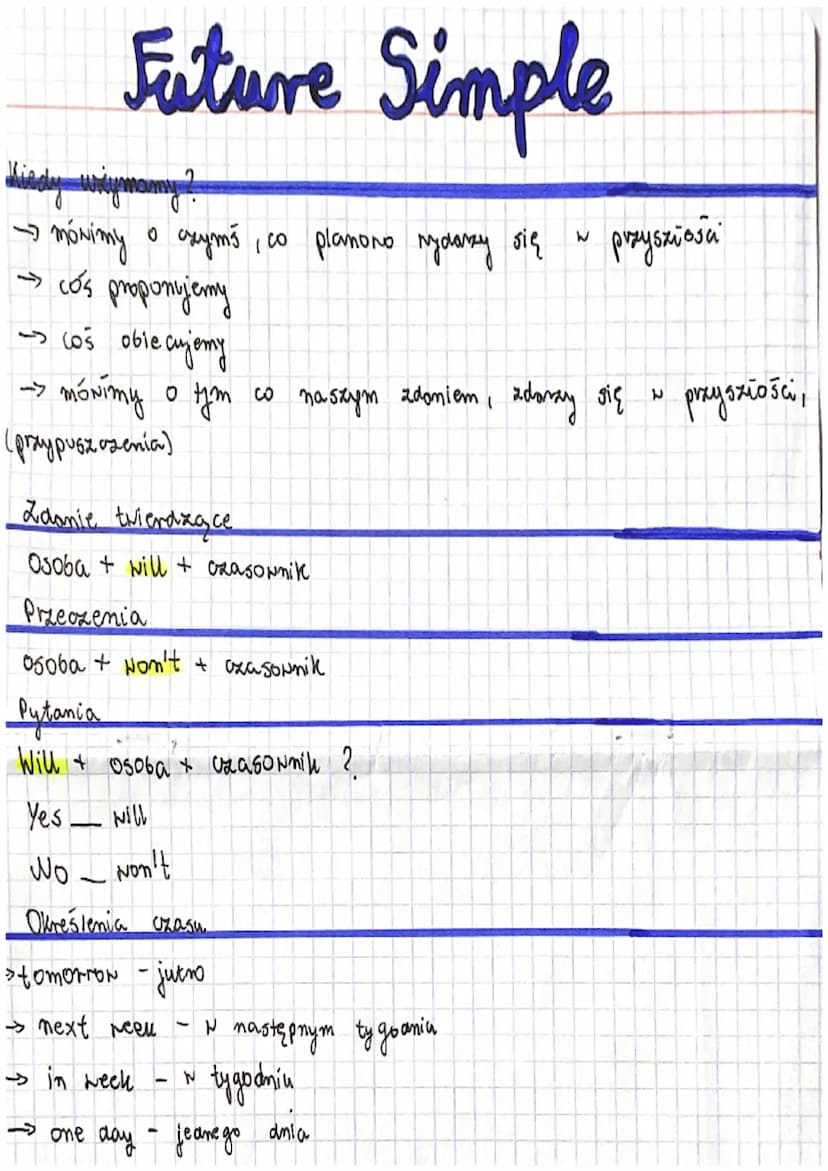 Future Simple
Kiedy używamy?
→ mówimy o czymś, co planowo wydarzy się w przyszłości
→ coś proponujemy
→ coś obiecujemy
→ mówimy o tym co naszym zdaniem, zdarzy się w przyszłości,
(przypuszczenia)
Zdanie twierdzące
Osoba + will + czasownik
Przeczenia
osoba + won't + czasownik
Pytania
Will + osoba + czasownik ?
Yes _ will
No _ won't
Określenia czasu
→ tomorrow - jutro
→ next week - w następnym tygodniu
→ in week - w tygodniu
→ one day - jednego dnia